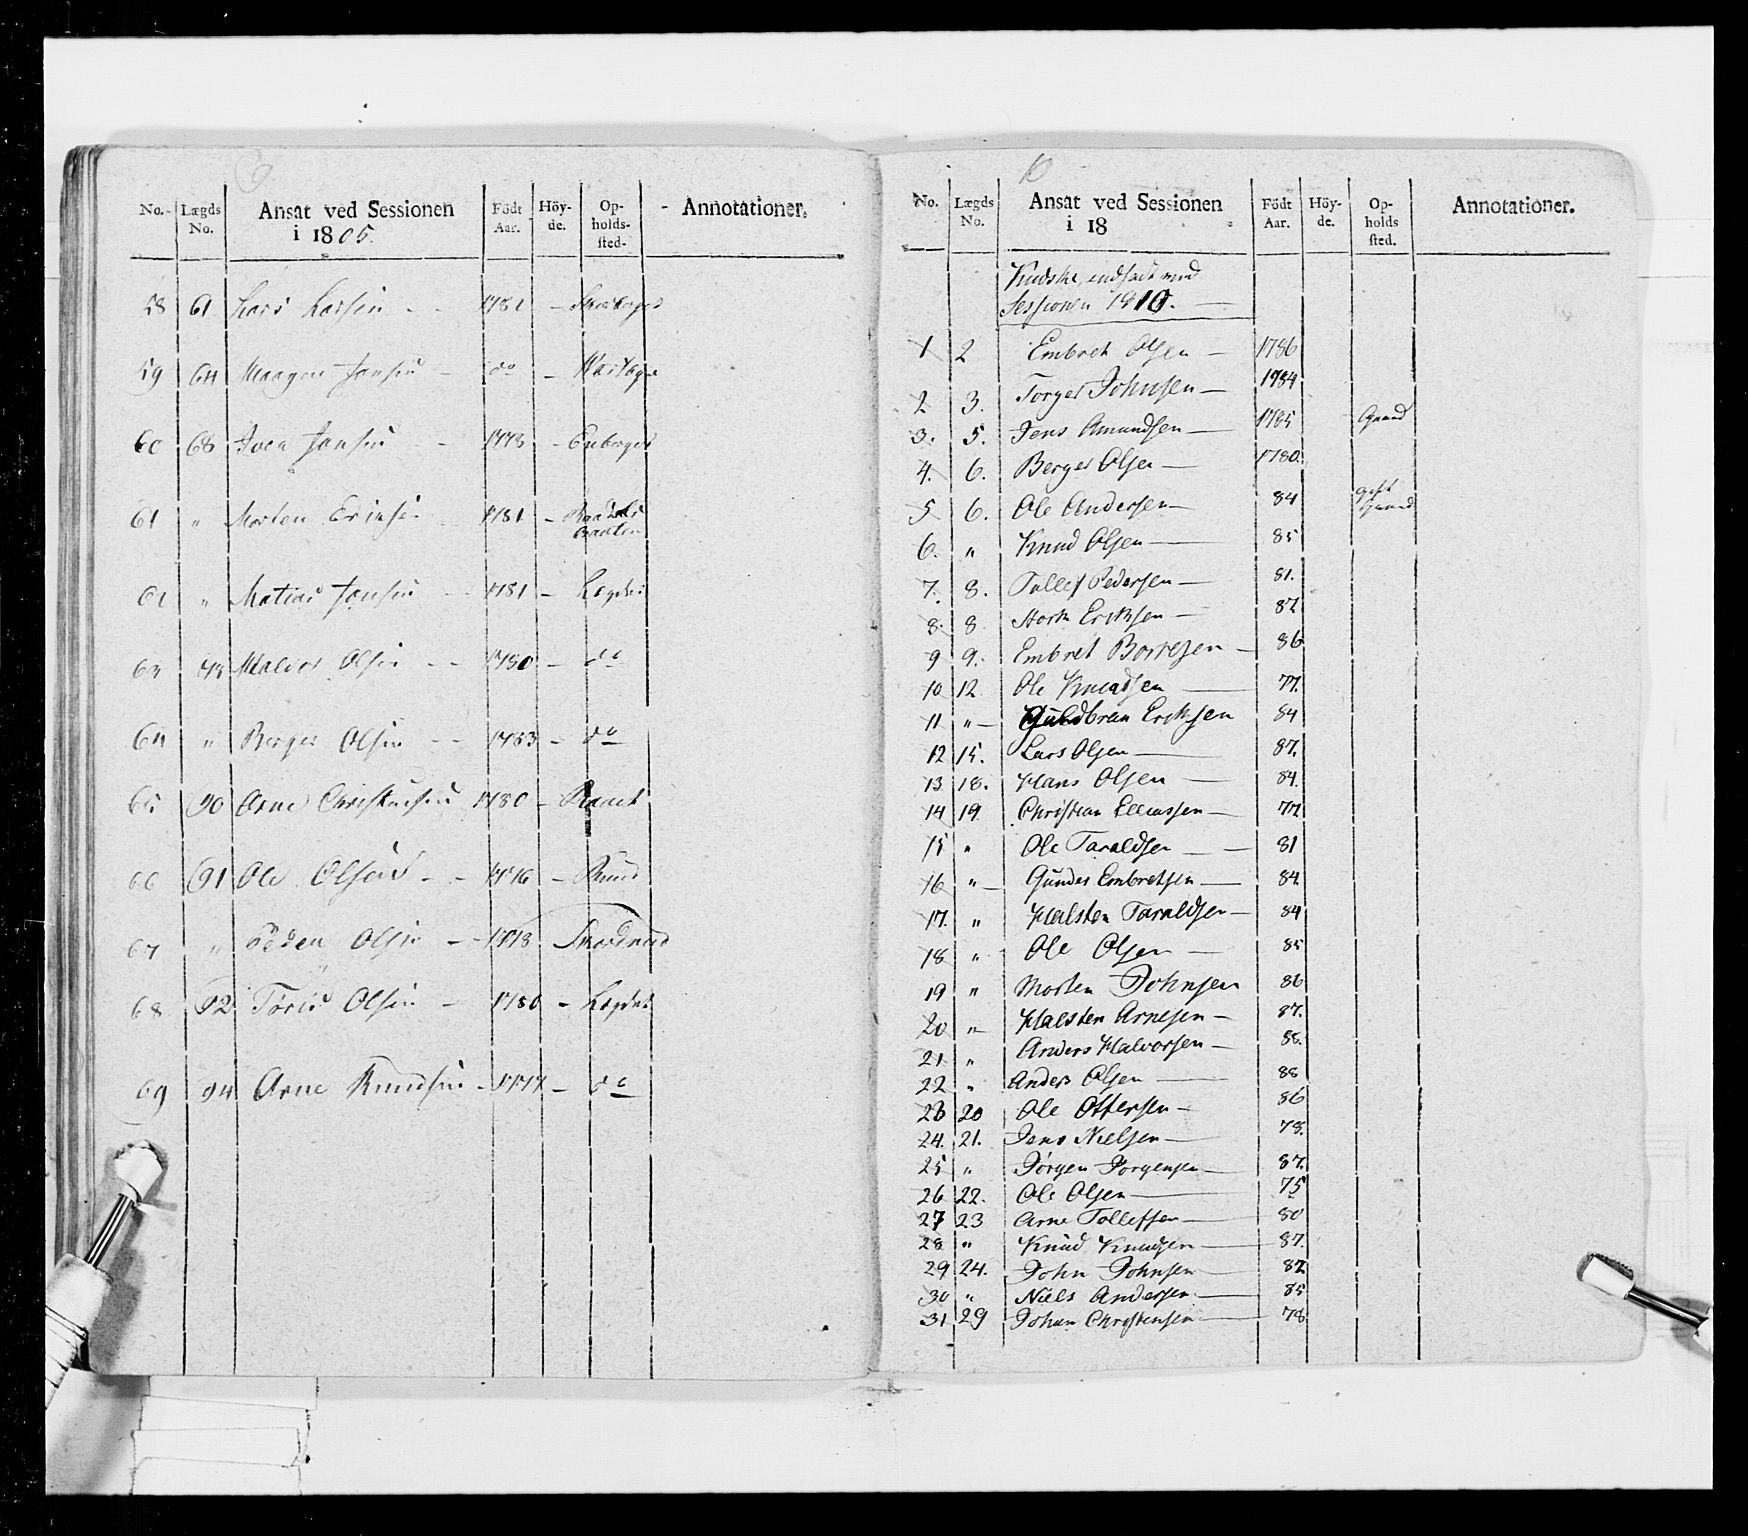 No. Lægds No. Ansat ved Sessionen i 1805. Födt Aar. Höy- de. Op- holds- sted. Annotationer.
58 61 Lars Larsen - - 1782 -
59 64 Maagen Jansen - do -
60 68 Iver Jansen - 1778 - Enberget
61 " Morten Eriksen 1781 -
62 " Matias Jansen - - 1781 -
63 78 Halvor Olsen - - 1780 - do
64 " Berger Olsen - - 1783 - do
65 90 Arne Christensen 1780 -
66 91 Ole Olsen - - 1776 -
67 " Peder Olsen - - 1778
68 92 Olsen - 1780 -
69 94 Arne Knudsen - 1777 - do
No. Lægds No. Ansat ved Sessionen i 18 Födt Aar. Höy- de. Op- holds sted. Annotationer.
Kudske, ved
Sessionen 1810.
1 2 Embret Olsen - 1786
2 3. Torger Johnsen - 1784
3. 5. Jens Amundsen - 1785
4. 6. Berger Olsen - 1780.
5 6. Ole Andersen - 84 gift
6. " Knud Olsen - 85
7. 8. Tollef Pedersen - 81.
8. 8 Eriksen - 87
9 9. Embret Borresen - 86
10 12 Ole Knudsen - 77.
11 " - Guldbran Eriksen 84
12 15. Lars Olsen - 87.
13 18. Hans Olsen - 84.
14 19 Christian - 77
15 " Ole Taraldsen - 81
16 " - Gunder Embretsen - 84
17. " Halsten Taraldsen - 84
18 " Ole Olsen - 85
19 " Morten Johnsen 86
20 " Halsten Arnesen - 87.
21 " Anders Halvorsen - 88.
22 " Anders Olsen - 88
23 20 Ole Ottersen - 86
24. 21. Jens Nielsen - 78.
25 " Jörgen Jorgensen - 87.
26 22. Ole Olsen - 75
27 23 Arne Tollefsen - 80
28 " Knud Knudsen - 87.
29 24. John Johnsen - 87
30 " Niels Andersen - 85
31 29 Johan Christensen - 78